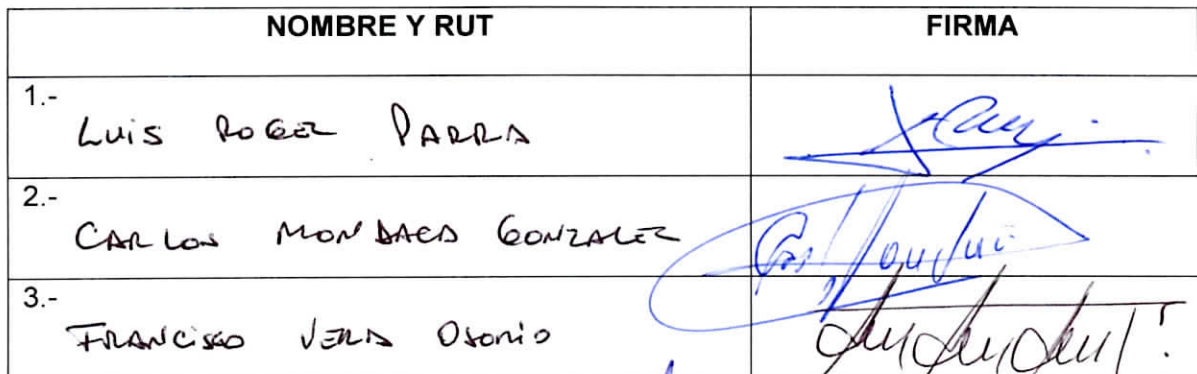 NOMBRE Y RUT FIRMA
1.-
LUIS ROGEL PARRA
2.-
CARLOS MONDACA GONZALEZ
3.-
FRANCISCO VERA OSORIO